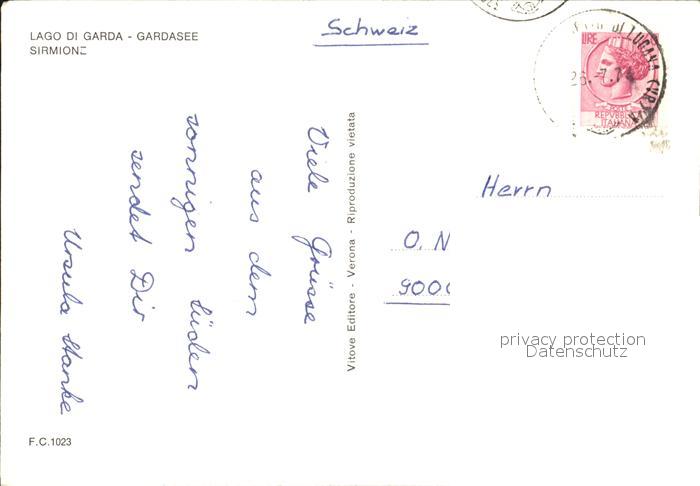 LAGO DI GARDA - GARDASEE
SIRMIONE
Schweiz
LIRE
26.-7.7
POSTE
REPVBBLICA
ITALIANA
Viele Grüsse
aus dem
sonnigen Süden
sendet Dir
Ursula Stanke
Vitove Editore - Verona - Riproduzione vietata
Herrn
O. N
900
privacy protection
Datenschutz
F.C.1023